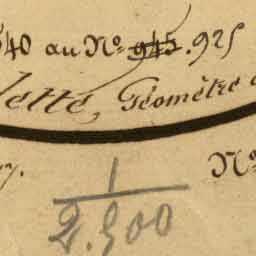 40 au Nº 945.925
lette, Géomètre
Nº
1
2.500